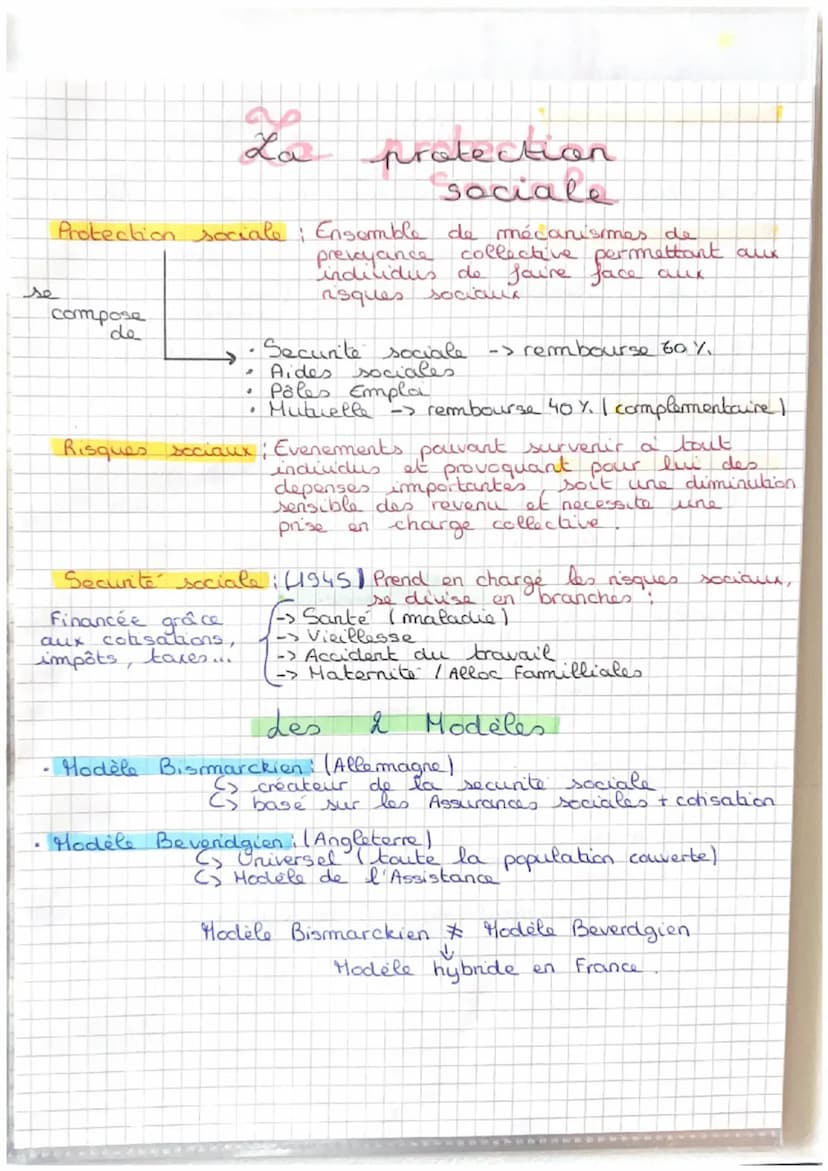 La protection
sociale
Protection sociale : Ensemble de mécanismes de
prevoyance collective permettant aux
individus de faire face aux
risques sociaux
se
compose
de
• Securité sociale -> rembourse 60 %.
• Aides sociales
• Pôles Emploi
• Mutuelle -> rembourse 40 %. (complementaire)
Risques sociaux : Evenements pouvant survenir à tout
individus et provoquant pour lui des
depenses importantes, soit une diminution
sensible des revenu et necessite une
prise en charge collective.
Securité sociale : (1945) Prend en charge les risques sociaux,
se divise en branches :
Financée grâce
aux cotisations,
impôts, taxes...
-> Santé (maladie)
-> Vieillesse
-> Accident du travail
-> Maternité / Alloc Familliales
Les 2 Modèles
• Modèle Bismarckien : (Allemagne)
↳ créateur de la securité sociale
↳ basé sur les Assurances sociales + cotisation
• Modèle Beveridgien : (Angleterre)
↳ Universel (toute la population couverte)
↳ Modèle de l'Assistance
Modèle Bismarckien * Modèle Beverdgien
↓
Modèle hybride en France.